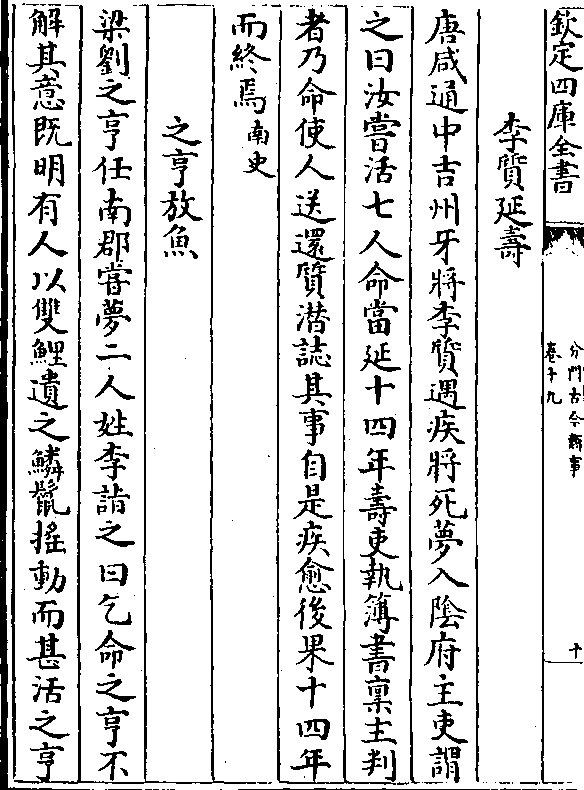 欽定四庫全書
分門古今類事
卷十九
十
李質延壽
唐咸通中吉州牙將李質遇疾將死夢入陰府主吏謂
之曰汝嘗活七人命當延十四年壽吏執簿書稟主判
者乃命使人送還質潛誌其事自是疾愈後果十四年
而終焉南史
之亨放魚
梁劉之亨任南郡嘗夢二人姓李詣之曰乞命之亨不
解其意既明有人以雙鯉遺之鱗鬛搖動而甚活之亨